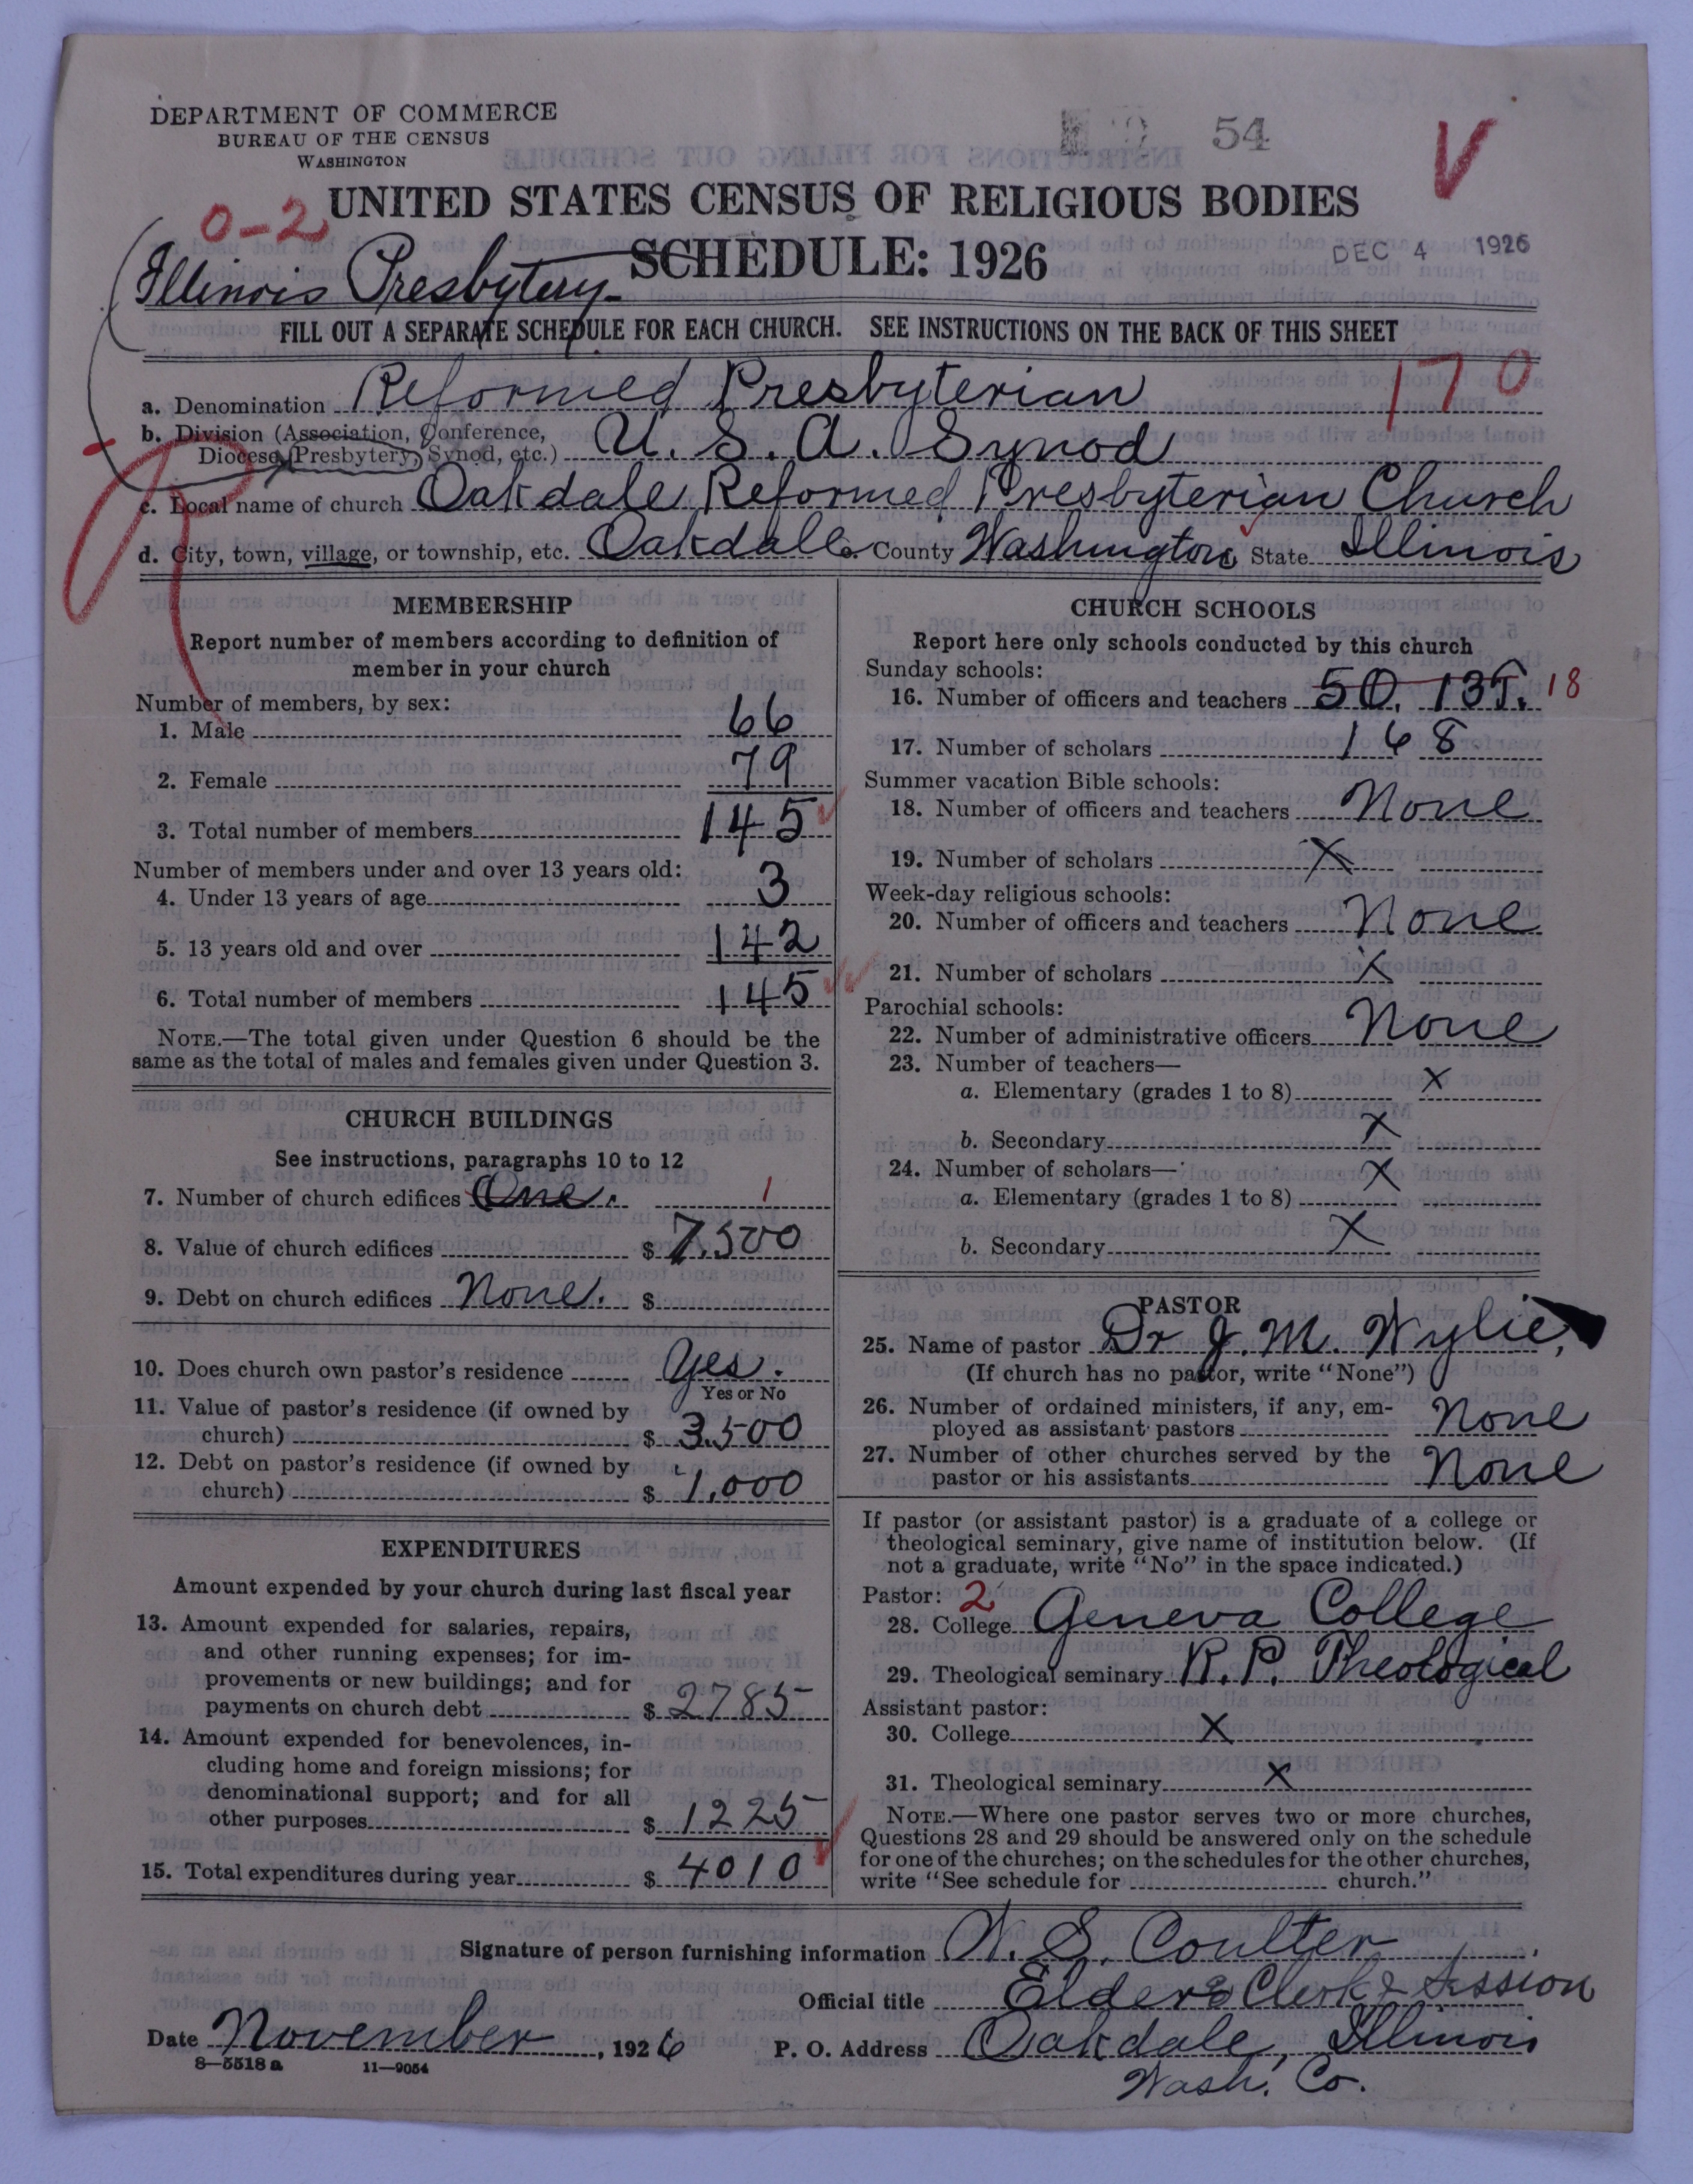 DEPARTMENT OF COMMERCE
BUREAU OF THE CENSUS
WASHINGTON
54
V
0-2
UNITED STATES CENSUS OF RELIGIOUS BODIES
SCHEDULE: 1926
DEC 4 1926
Illinois Presbytery
FILL OUT A SEPARATE SCHEDULE FOR EACH CHURCH. SEE INSTRUCTIONS ON THE BACK OF THIS SHEET
170
a. Denomination Reformed Presbyterian
b. Division (Association, Conference,
Diocese, Presbytery, Synod, etc.) U. S. A. Synod
c. Local name of church Oakdale Reformed Presbyterian Church
d. City, town, village, or township, etc. Oakdale. County Washington State Illinois
MEMBERSHIP
Report number of members according to definition of
member in your church
Number of members, by sex:
1. Male 66
2. Female 79
3. Total number of members 145
Number of members under and over 13 years old:
4. Under 13 years of age 3
5. 13 years old and over 142
6. Total number of members 145
NOTE.—The total given under Question 6 should be the
same as the total of males and females given under Question 3.
CHURCH BUILDINGS
See instructions, paragraphs 10 to 12
7. Number of church edifices One. 1
8. Value of church edifices $ 7,500
9. Debt on church edifices None. $
10. Does church own pastor's residence Yes.
Yes or No
11. Value of pastor's residence (if owned by
church) $ 3,500
12. Debt on pastor's residence (if owned by
church) $ 1,000
EXPENDITURES
Amount expended by your church during last fiscal year
13. Amount expended for salaries, repairs,
and other running expenses; for im-
provements or new buildings; and for
payments on church debt $ 2785
14. Amount expended for benevolences, in-
cluding home and foreign missions; for
denominational support; and for all
other purposes $ 1225
15. Total expenditures during year $ 4010
CHURCH SCHOOLS
Report here only schools conducted by this church
Sunday schools:
16. Number of officers and teachers 50. 13T. 18
17. Number of scholars 168
Summer vacation Bible schools:
18. Number of officers and teachers None
19. Number of scholars X
Week-day religious schools:
20. Number of officers and teachers None
21. Number of scholars X
Parochial schools:
22. Number of administrative officers None
23. Number of teachers—
a. Elementary (grades 1 to 8) X
b. Secondary X
24. Number of scholars— X
a. Elementary (grades 1 to 8)
b. Secondary X
PASTOR
25. Name of pastor Dr J. M. Wylie,
(If church has no pastor, write "None")
26. Number of ordained ministers, if any, em-
ployed as assistant pastors None
27. Number of other churches served by the
pastor or his assistants None
If pastor (or assistant pastor) is a graduate of a college or
theological seminary, give name of institution below. (If
not a graduate, write "No" in the space indicated.)
Pastor: 2
28. College Geneva College
29. Theological seminary R. P. Theological
Assistant pastor:
30. College X
31. Theological seminary X
NOTE.—Where one pastor serves two or more churches,
Questions 28 and 29 should be answered only on the schedule
for one of the churches; on the schedules for the other churches,
write "See schedule for church."
Signature of person furnishing information W. S. Coulter
Official title Elder & Clerk of Session
Date November, 1926 P. O. Address Oakdale, Illinois
8-5518a 11-9054
Wash. Co.